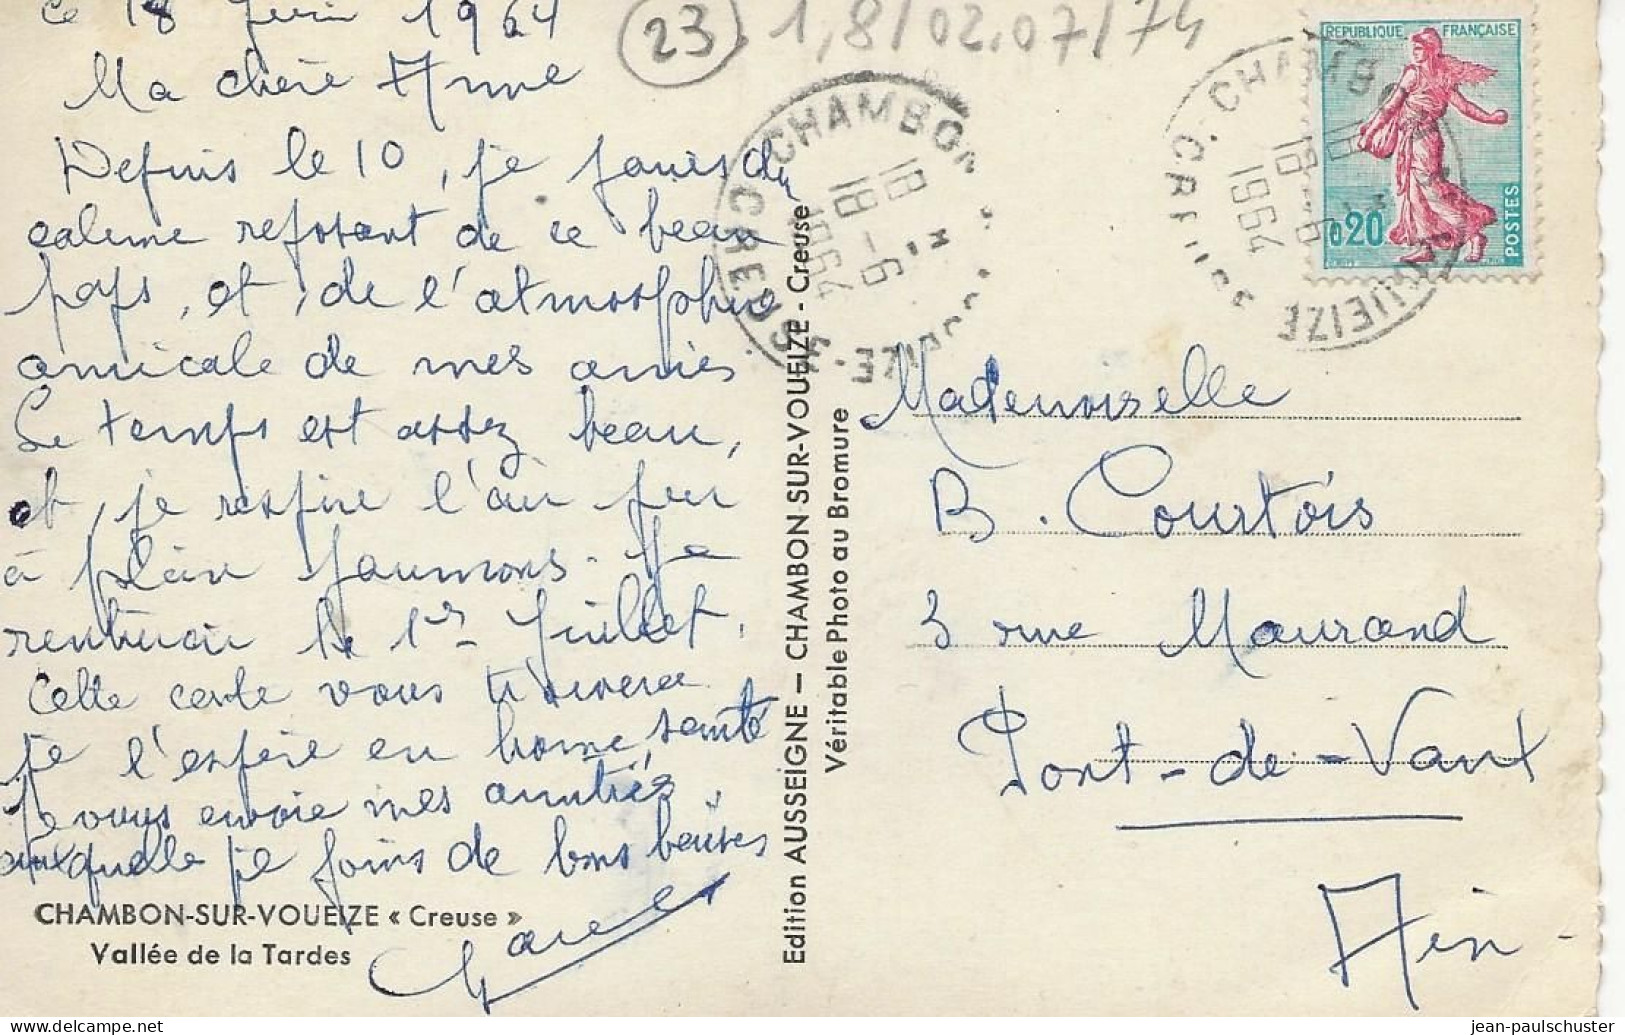 ce 18 Juin 1964
Ma chère Anne
Depuis le 10, je jouis du
calme reposant de ce beau
pays, et, de l'atmosphère
amicale de mes amies
Le temps est assez beau,
et, je respire l'air pur
à plein poumons. Je
rentrerai le 1er Juillet,
Cette carte vous trouvera
je l'espère en bonne santé
Je vous envoie mes amitiés
auxquelle je joins de bons baisers
CHAMBON-SUR-VOUEIZE « Creuse »
Vallée de la Tardes
Edition AUSSEIGNE — CHAMBON-SUR-VOUEIZE - Creuse
Véritable Photo au Bromure
23
1,8/02.07/74
CHAMBON
18 H
18-6
1964
CREUSE
REPUBLIQUE FRANÇAISE
0,20
POSTES
CHAMBON
18-6
1964
VOUEIZE
CREUSE
Mademoiselle
B. Courtois
3 rue Maurand
Pont-de-Vaux
Ain
jean-paulschuster